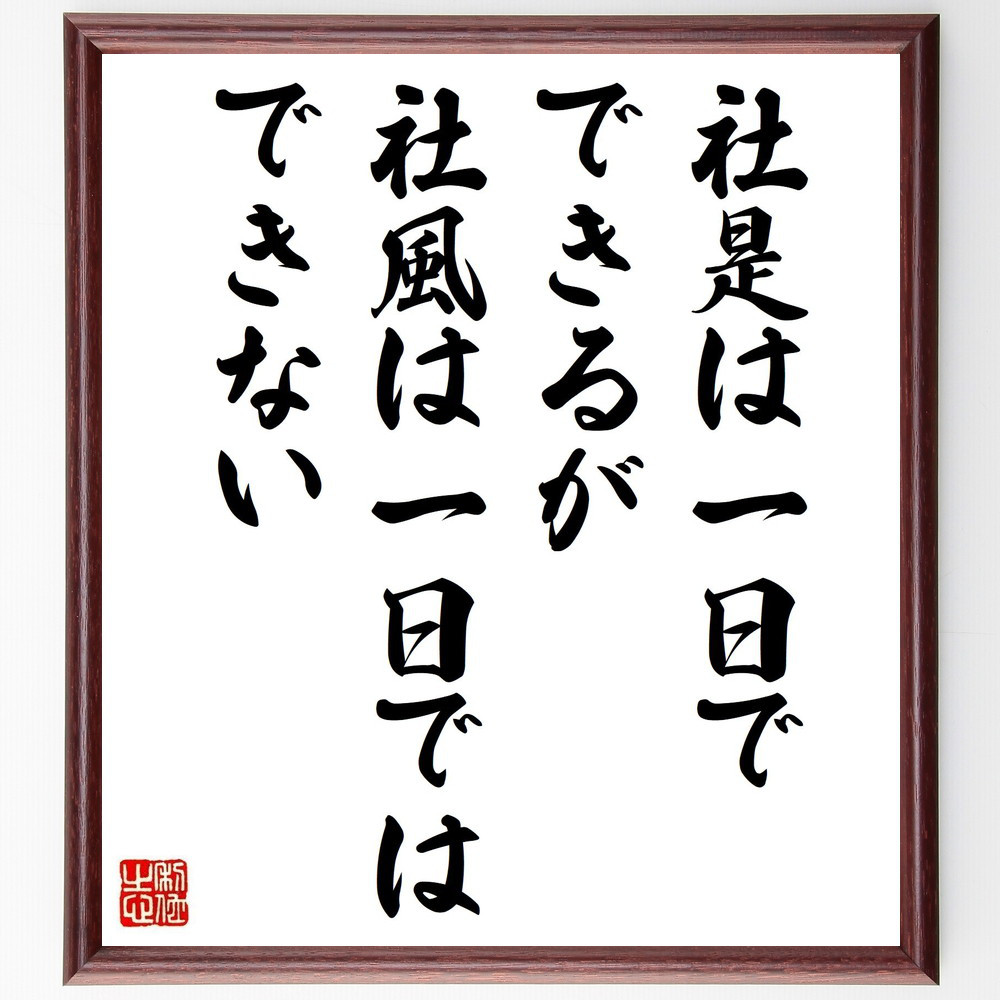 社是は一日で
できるが
社風は一日では
できない